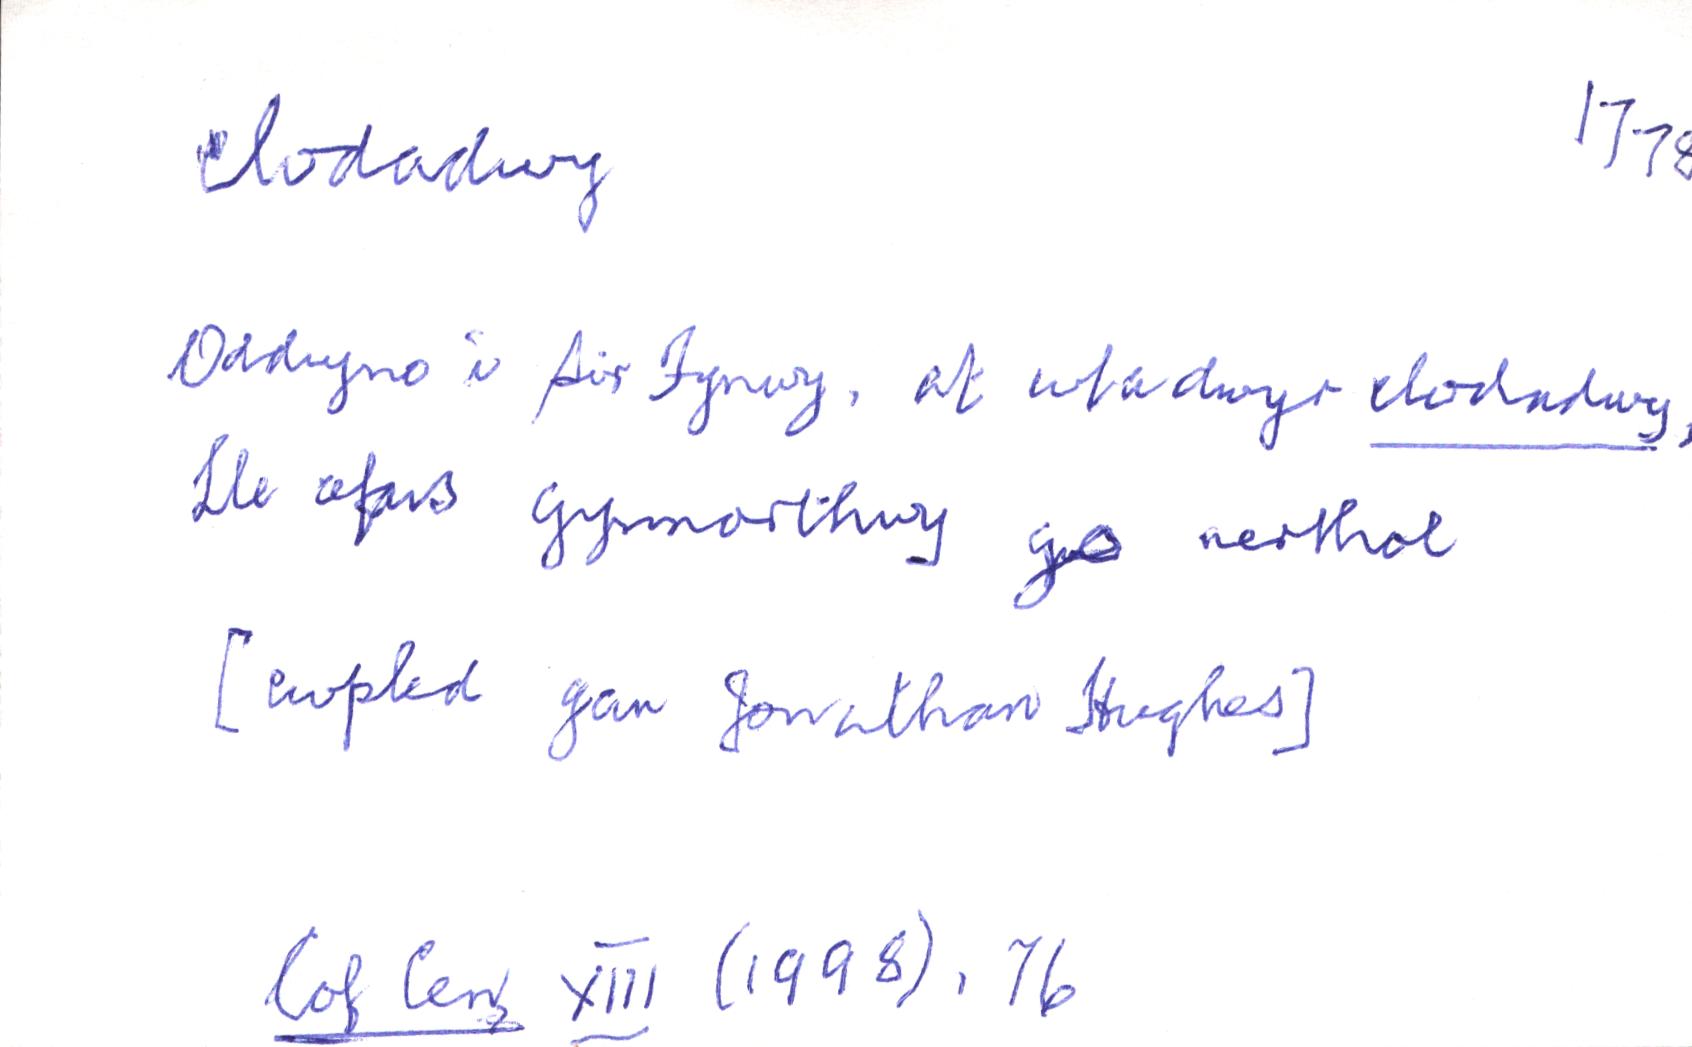 clodadwy 1778
Oddyno i Sir Fynwy, at wladwyr clodadwy,
Lle cefais gynmorthwy go nerthol
[cwpled gan Jonathan Hughes]
Cof Cen XIII (1998), 76